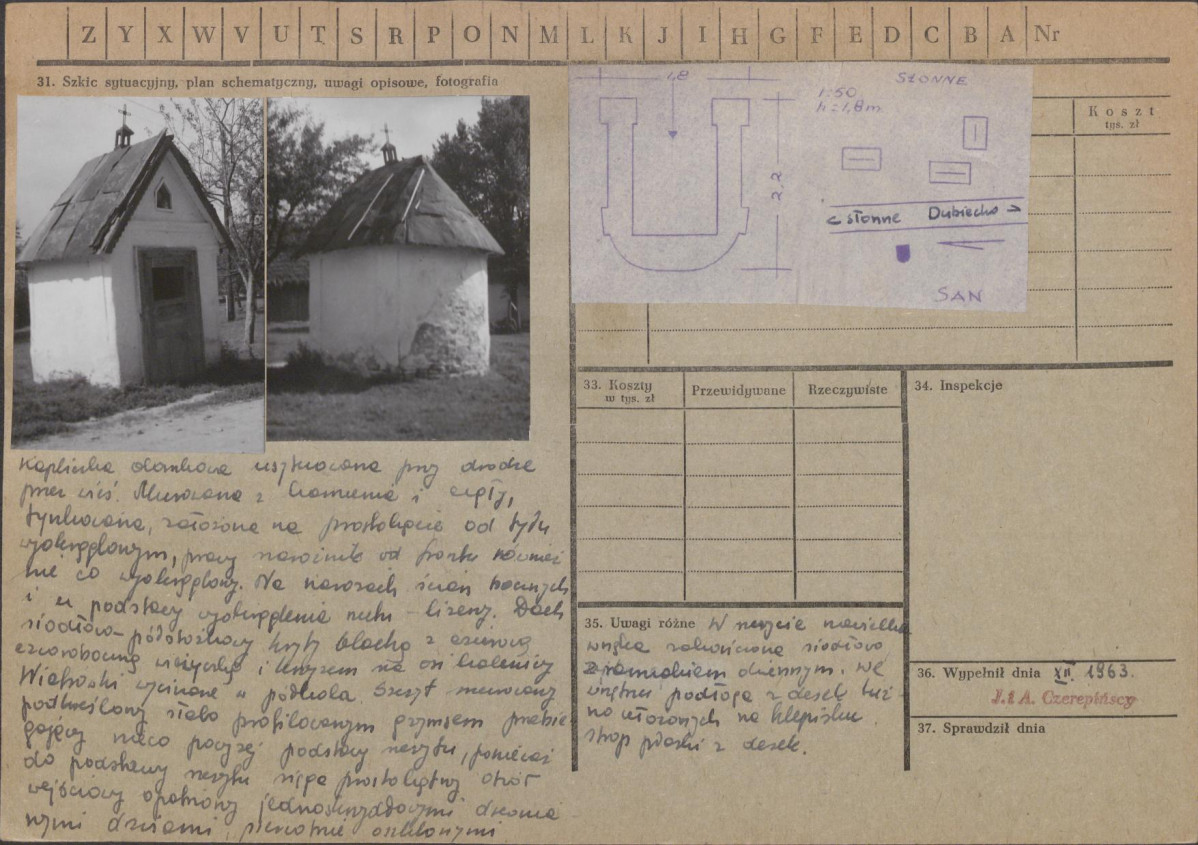 Z Y X W V U T S R P O N M L K J I H G F E D C B A Nr
31. Szkic sytuacyjny, plan schematyczny, uwagi opisowe, fotografia
1,8
2,2
SŁONNE
1:50
h=1,8m
< słonne Dubiecko >
SAN
Koszt
tys. zł
Kapliczka domkowa usytuowana przy drodze
przez wieś. Murowana z kamienia i cegły,
tynkowana, założona na prostokącie od tyłu
wyokrąglonym, prawy narożnik od frontu również
nie co wyokrąglony. Na narożach ścian bocznych
i u podstawy wyokrąglenia muru - lizeny. Dach
siodłowo-półstożkowy kryty blachą z
czworoboczną wieżyczką i krzyżem na osi kalenicy
Wiatrówki wycinane w półkola. Szczyt murowany
podkreślony słabo profilowanym gzymsem przebie
gający nieco powyżej podstawy szczytu, ponieważ
do podstawy szczytu sięga prostokątny otwór
wejściowy opatrzony jednoskrzydłowymi drewnia
nymi drzwiami, pierwotnie oszklonymi
33. Koszty
w tys. zł
Przewidywane
Rzeczywiste
34. Inspekcje
35. Uwagi różne W szczycie niewielka
wnęka zakończona siodłowo
dziennym. We
wnętrzu podłoga z desek luź-
no ułożonych na klepisku.
strop płaski z desek.
36. Wypełnił dnia XII. 1963.
J. i A. Czerepińscy
37. Sprawdził dnia